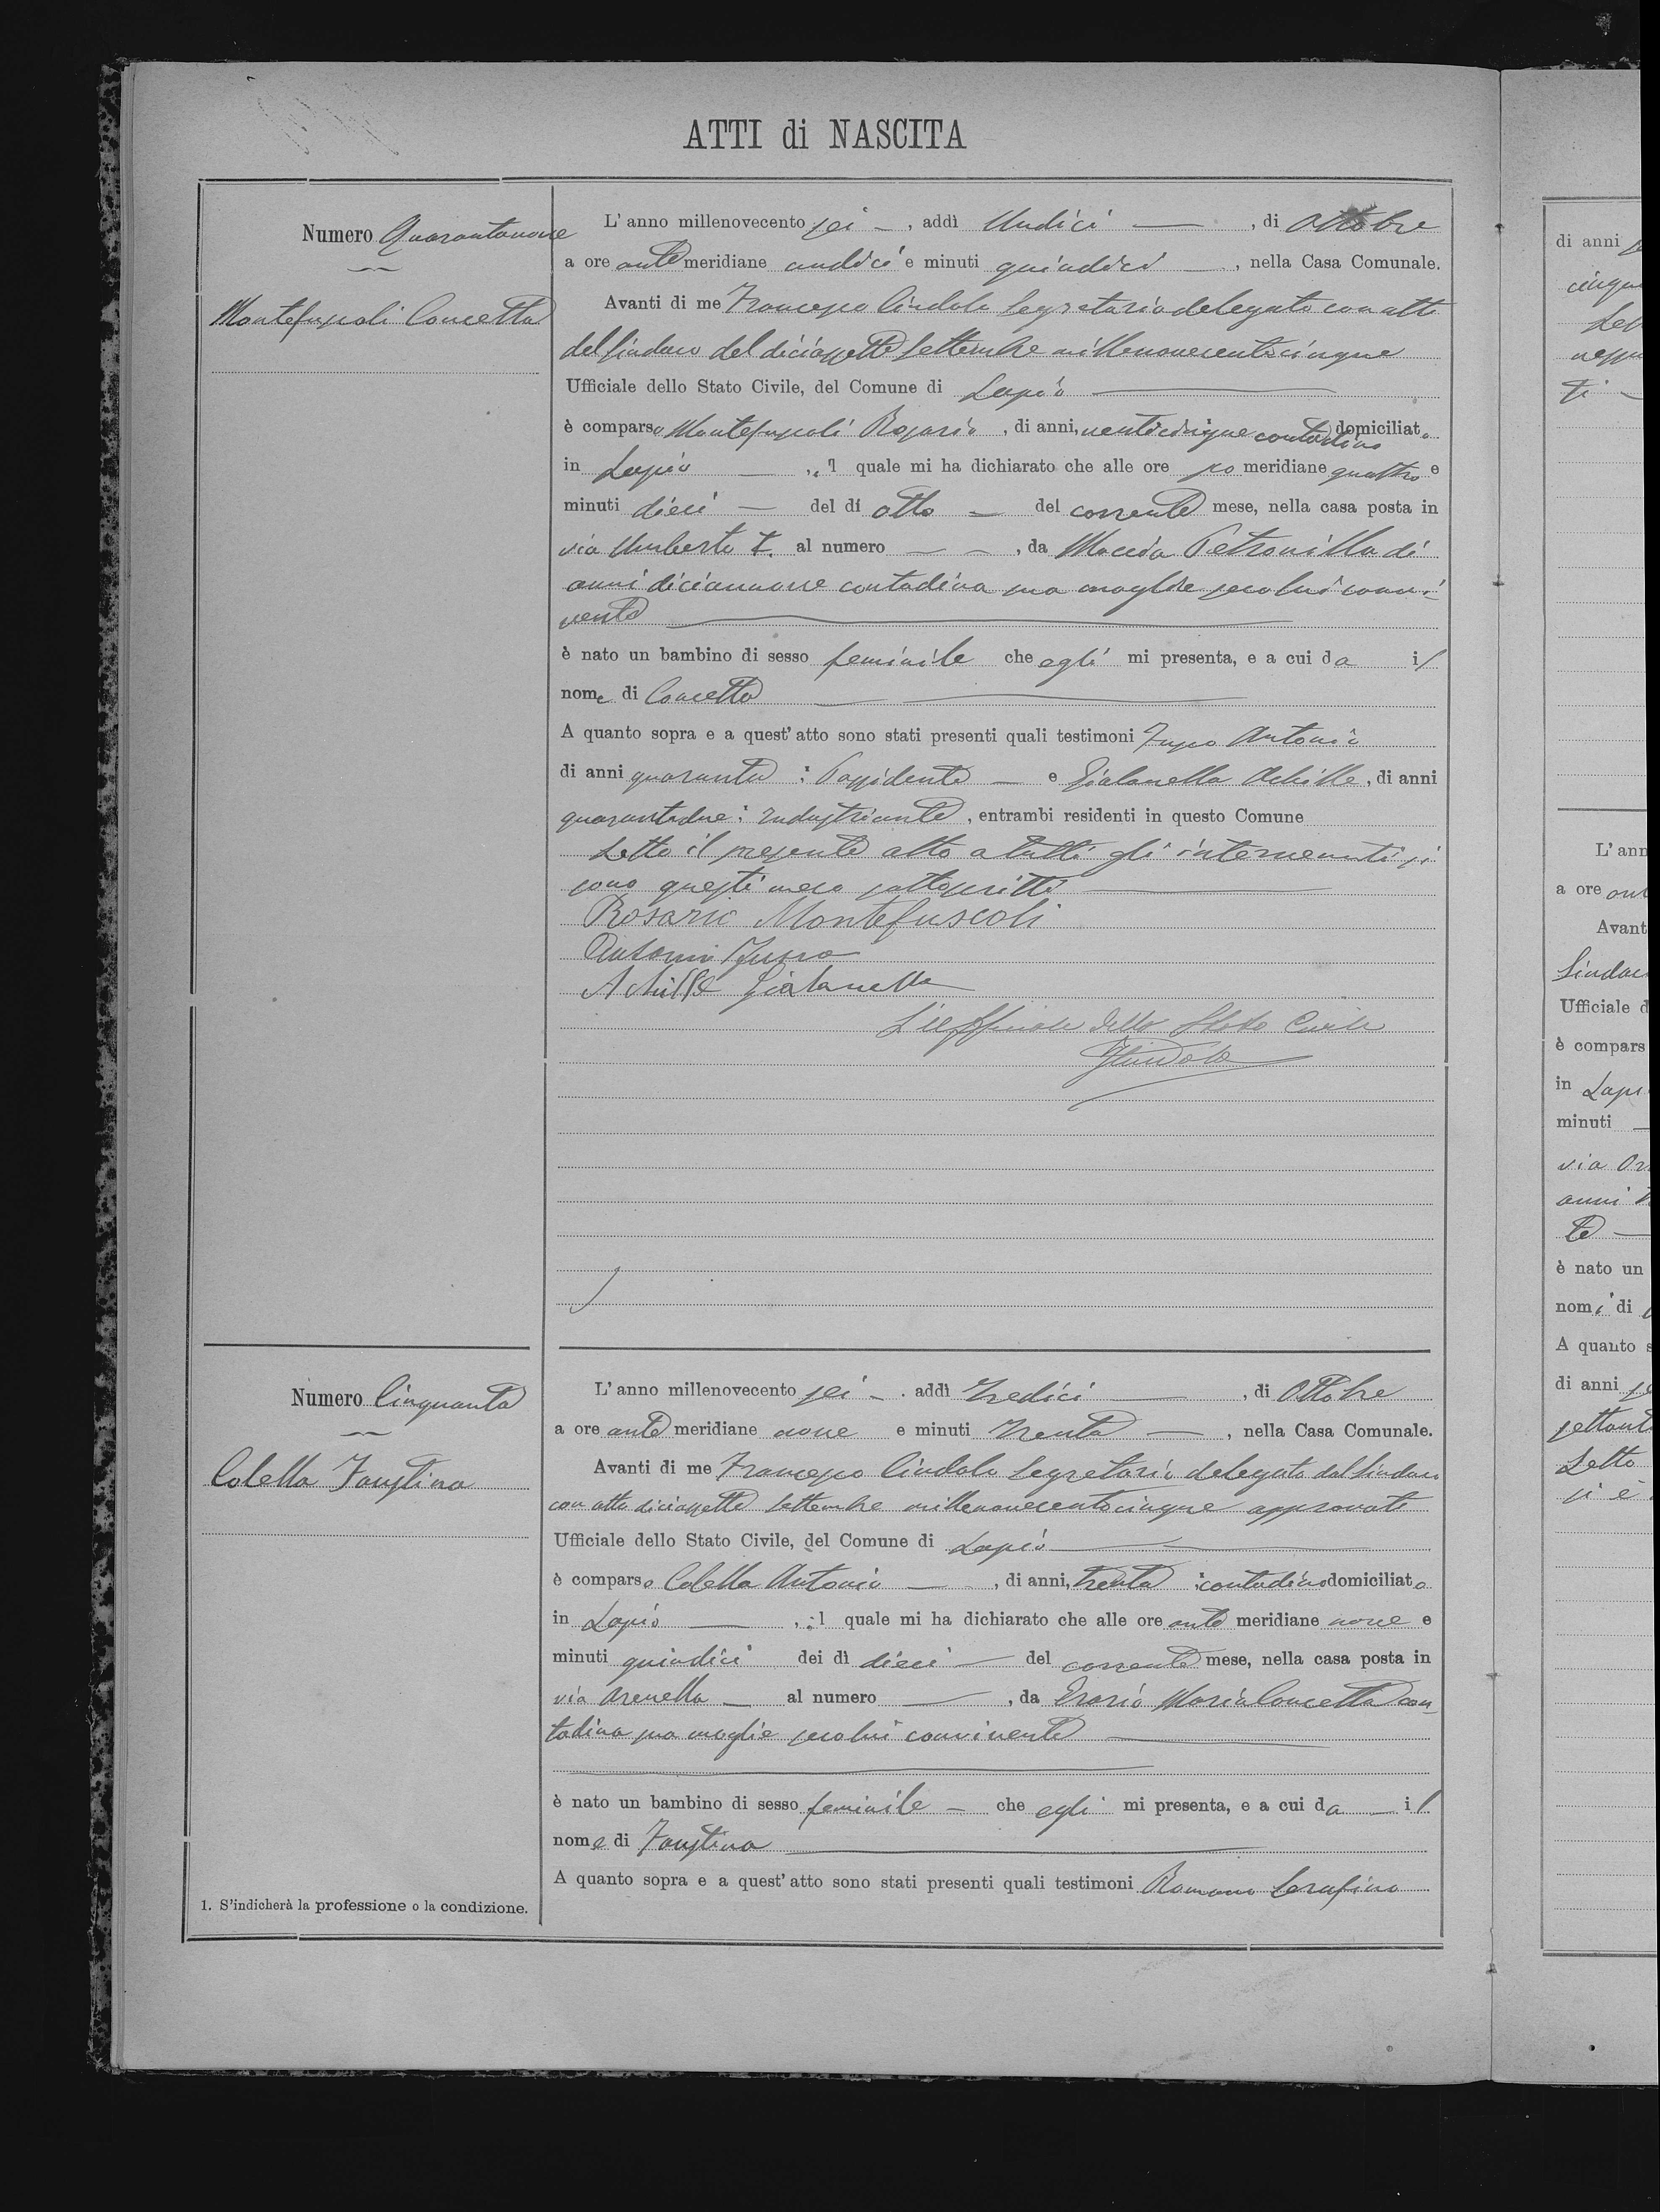 ATTI di NASCITA
Numero Quarantanove
Montefuscoli Concetta
L'anno millenovecento sei, addì Undici, di Ottobre
a ore antemeridiane undici e minuti quindici, nella Casa Comunale.
Avanti di me Francesco Cindolo Segretario delegato con atto
del Sindaco del diciassette Settembre millenovecentocinque
Ufficiale dello Stato Civile, del Comune di Lapio
è comparso Montefuscoli Rosario, di anni, venticinque contadino domiciliato
in Lapio, il quale mi ha dichiarato che alle ore po meridiane quattro e
minuti dieci del dì otto del corrente mese, nella casa posta in
via Umberto I. al numero, da Macida Petronilla di
anni diciannove contadina sua moglie secolui convi-
vente
è nato un bambino di sesso feminile che egli mi presenta, e a cui da il
nome di Concetta
A quanto sopra e a quest'atto sono stati presenti quali testimoni Antonio
di anni quaranta: Possidente e Gialanella Achille, di anni
quarantadue: Industriante, entrambi residenti in questo Comune
Letto il presente atto a tutti gli intervenuti si
sono questi meco sottoscritti
Rosario Montefuscoli
Antonio
Achille Gialanella
L'ufficiale dello Stato Civile
FCindolo
Numero Cinquanta
Colella Faustina
L'anno millenovecento sei. addì tredici, di Ottobre
a ore ante meridiane nove e minuti trenta, nella Casa Comunale.
Avanti di me Francesco Cindolo Segretario delegato dal Sindaco
con atto diciassette Settembre millenovecentocinque approvato
Ufficiale dello Stato Civile, del Comune di Lapio
è comparso Colella Antonio, di anni, trenta contadino domiciliato
in Lapio, il quale mi ha dichiarato che alle ore ante meridiane nove e
minuti quindici dei dì dieci del corrente mese, nella casa posta in
via Arenella al numero, da Erario Maria Concetta con-
tadina sua moglie secolui convivente
è nato un bambino di sesso feminile che egli mi presenta, e a cui da il
nome di Faustina
A quanto sopra e a quest'atto sono stati presenti quali testimoni Romano Serafino
1. S'indicherà la professione o la condizione.
di anni
Sindaco
L'ann
a ore
Avant
Ufficiale d
è compars
in Lapi
minuti
via
anni
è nato un
nomi di
A quanto s
di anni
Letto
si è